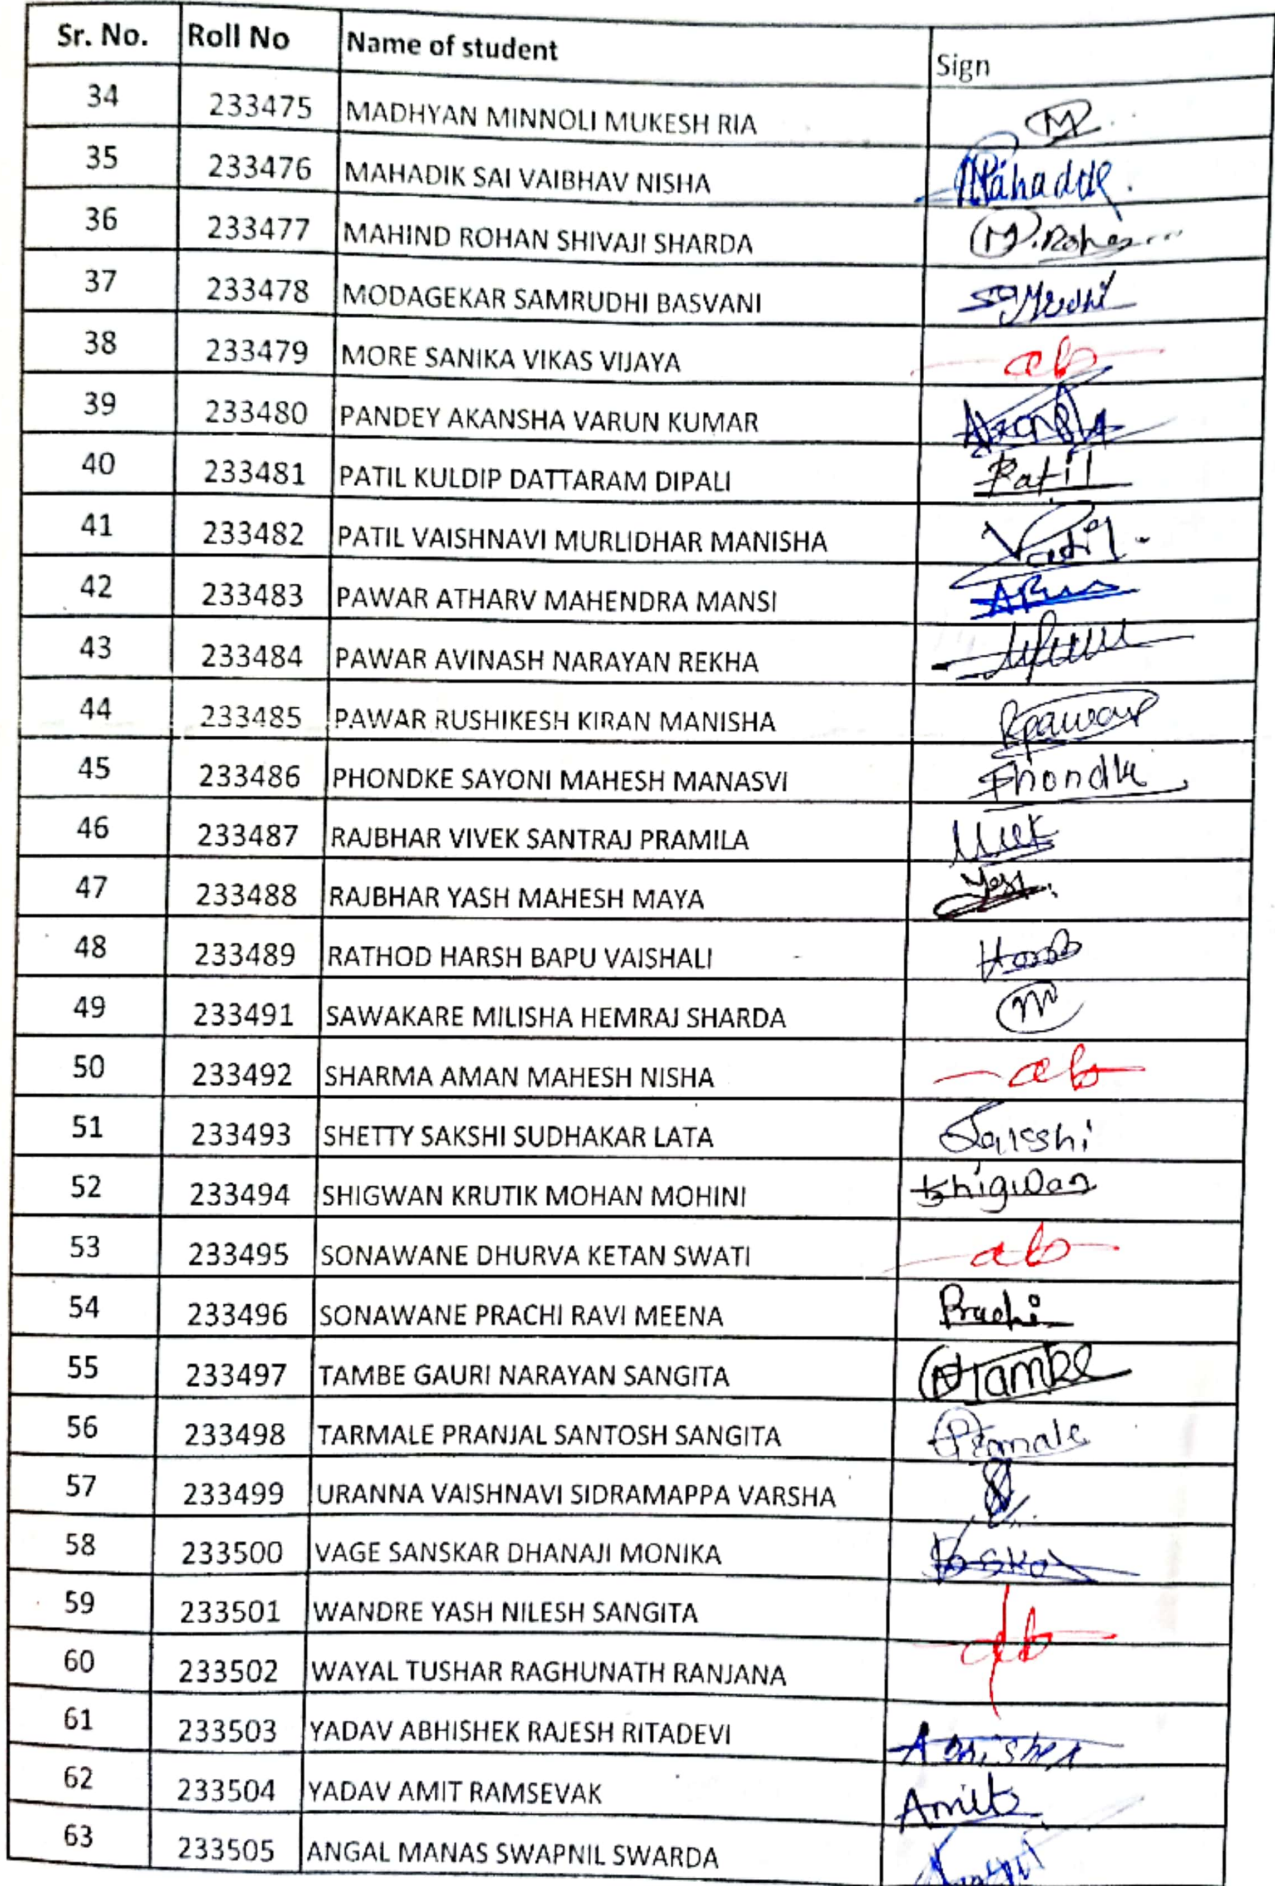 Sr. No. Roll No Name of student Sign
34 233475 MADHYAN MINNOLI MUKESH RIA
35 233476 MAHADIK SAI VAIBHAV NISHA
36 233477 MAHIND ROHAN SHIVAJI SHARDA
37 233478 MODAGEKAR SAMRUDHI BASVANI
38 233479 MORE SANIKA VIKAS VIJAYA ab
39 233480 PANDEY AKANSHA VARUN KUMAR
40 233481 PATIL KULDIP DATTARAM DIPALI Patil
41 233482 PATIL VAISHNAVI MURLIDHAR MANISHA
42 233483 PAWAR ATHARV MAHENDRA MANSI
43 233484 PAWAR AVINASH NARAYAN REKHA
44 233485 PAWAR RUSHIKESH KIRAN MANISHA Rpawar
45 233486 PHONDKE SAYONI MAHESH MANASVI
46 233487 RAJBHAR VIVEK SANTRAJ PRAMILA
47 233488 RAJBHAR YASH MAHESH MAYA
48 233489 RATHOD HARSH BAPU VAISHALI
49 233491 SAWAKARE MILISHA HEMRAJ SHARDA
50 233492 SHARMA AMAN MAHESH NISHA ab
51 233493 SHETTY SAKSHI SUDHAKAR LATA
52 233494 SHIGWAN KRUTIK MOHAN MOHINI
53 233495 SONAWANE DHURVA KETAN SWATI ab
54 233496 SONAWANE PRACHI RAVI MEENA Prachi
55 233497 TAMBE GAURI NARAYAN SANGITA
56 233498 TARMALE PRANJAL SANTOSH SANGITA
57 233499 URANNA VAISHNAVI SIDRAMAPPA VARSHA
58 233500 VAGE SANSKAR DHANAJI MONIKA
59 233501 WANDRE YASH NILESH SANGITA ab
60 233502 WAYAL TUSHAR RAGHUNATH RANJANA
61 233503 YADAV ABHISHEK RAJESH RITADEVI
62 233504 YADAV AMIT RAMSEVAK Amit
63 233505 ANGAL MANAS SWAPNIL SWARDA